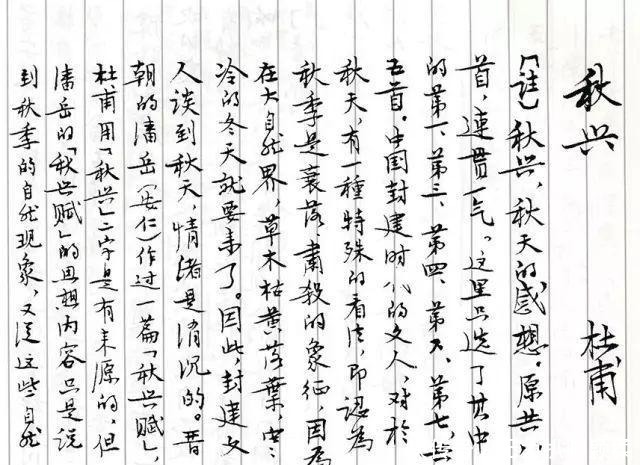 秋兴 杜甫
【註】秋兴,秋天的感想。原共八
首,連贯一气。这里只选了其中
的第一、第三、第四、第六、第七,共
五首。中国封建时代的文人,对於
秋天,有一種特殊的看法,即認為
秋季是衰落、肅殺的象征,因為
在大自然界,草木枯黄落葉,寒
冷的冬天就要来了。因此,封建文
人谈到秋天,情绪是消沉的。晋
朝的潘岳(安仁)作过一篇「秋兴赋」,
杜甫用「秋兴」二字是有来源的,但
潘岳的「秋兴赋」的思想内容只是说
到秋季的自然现象,又從这些自然